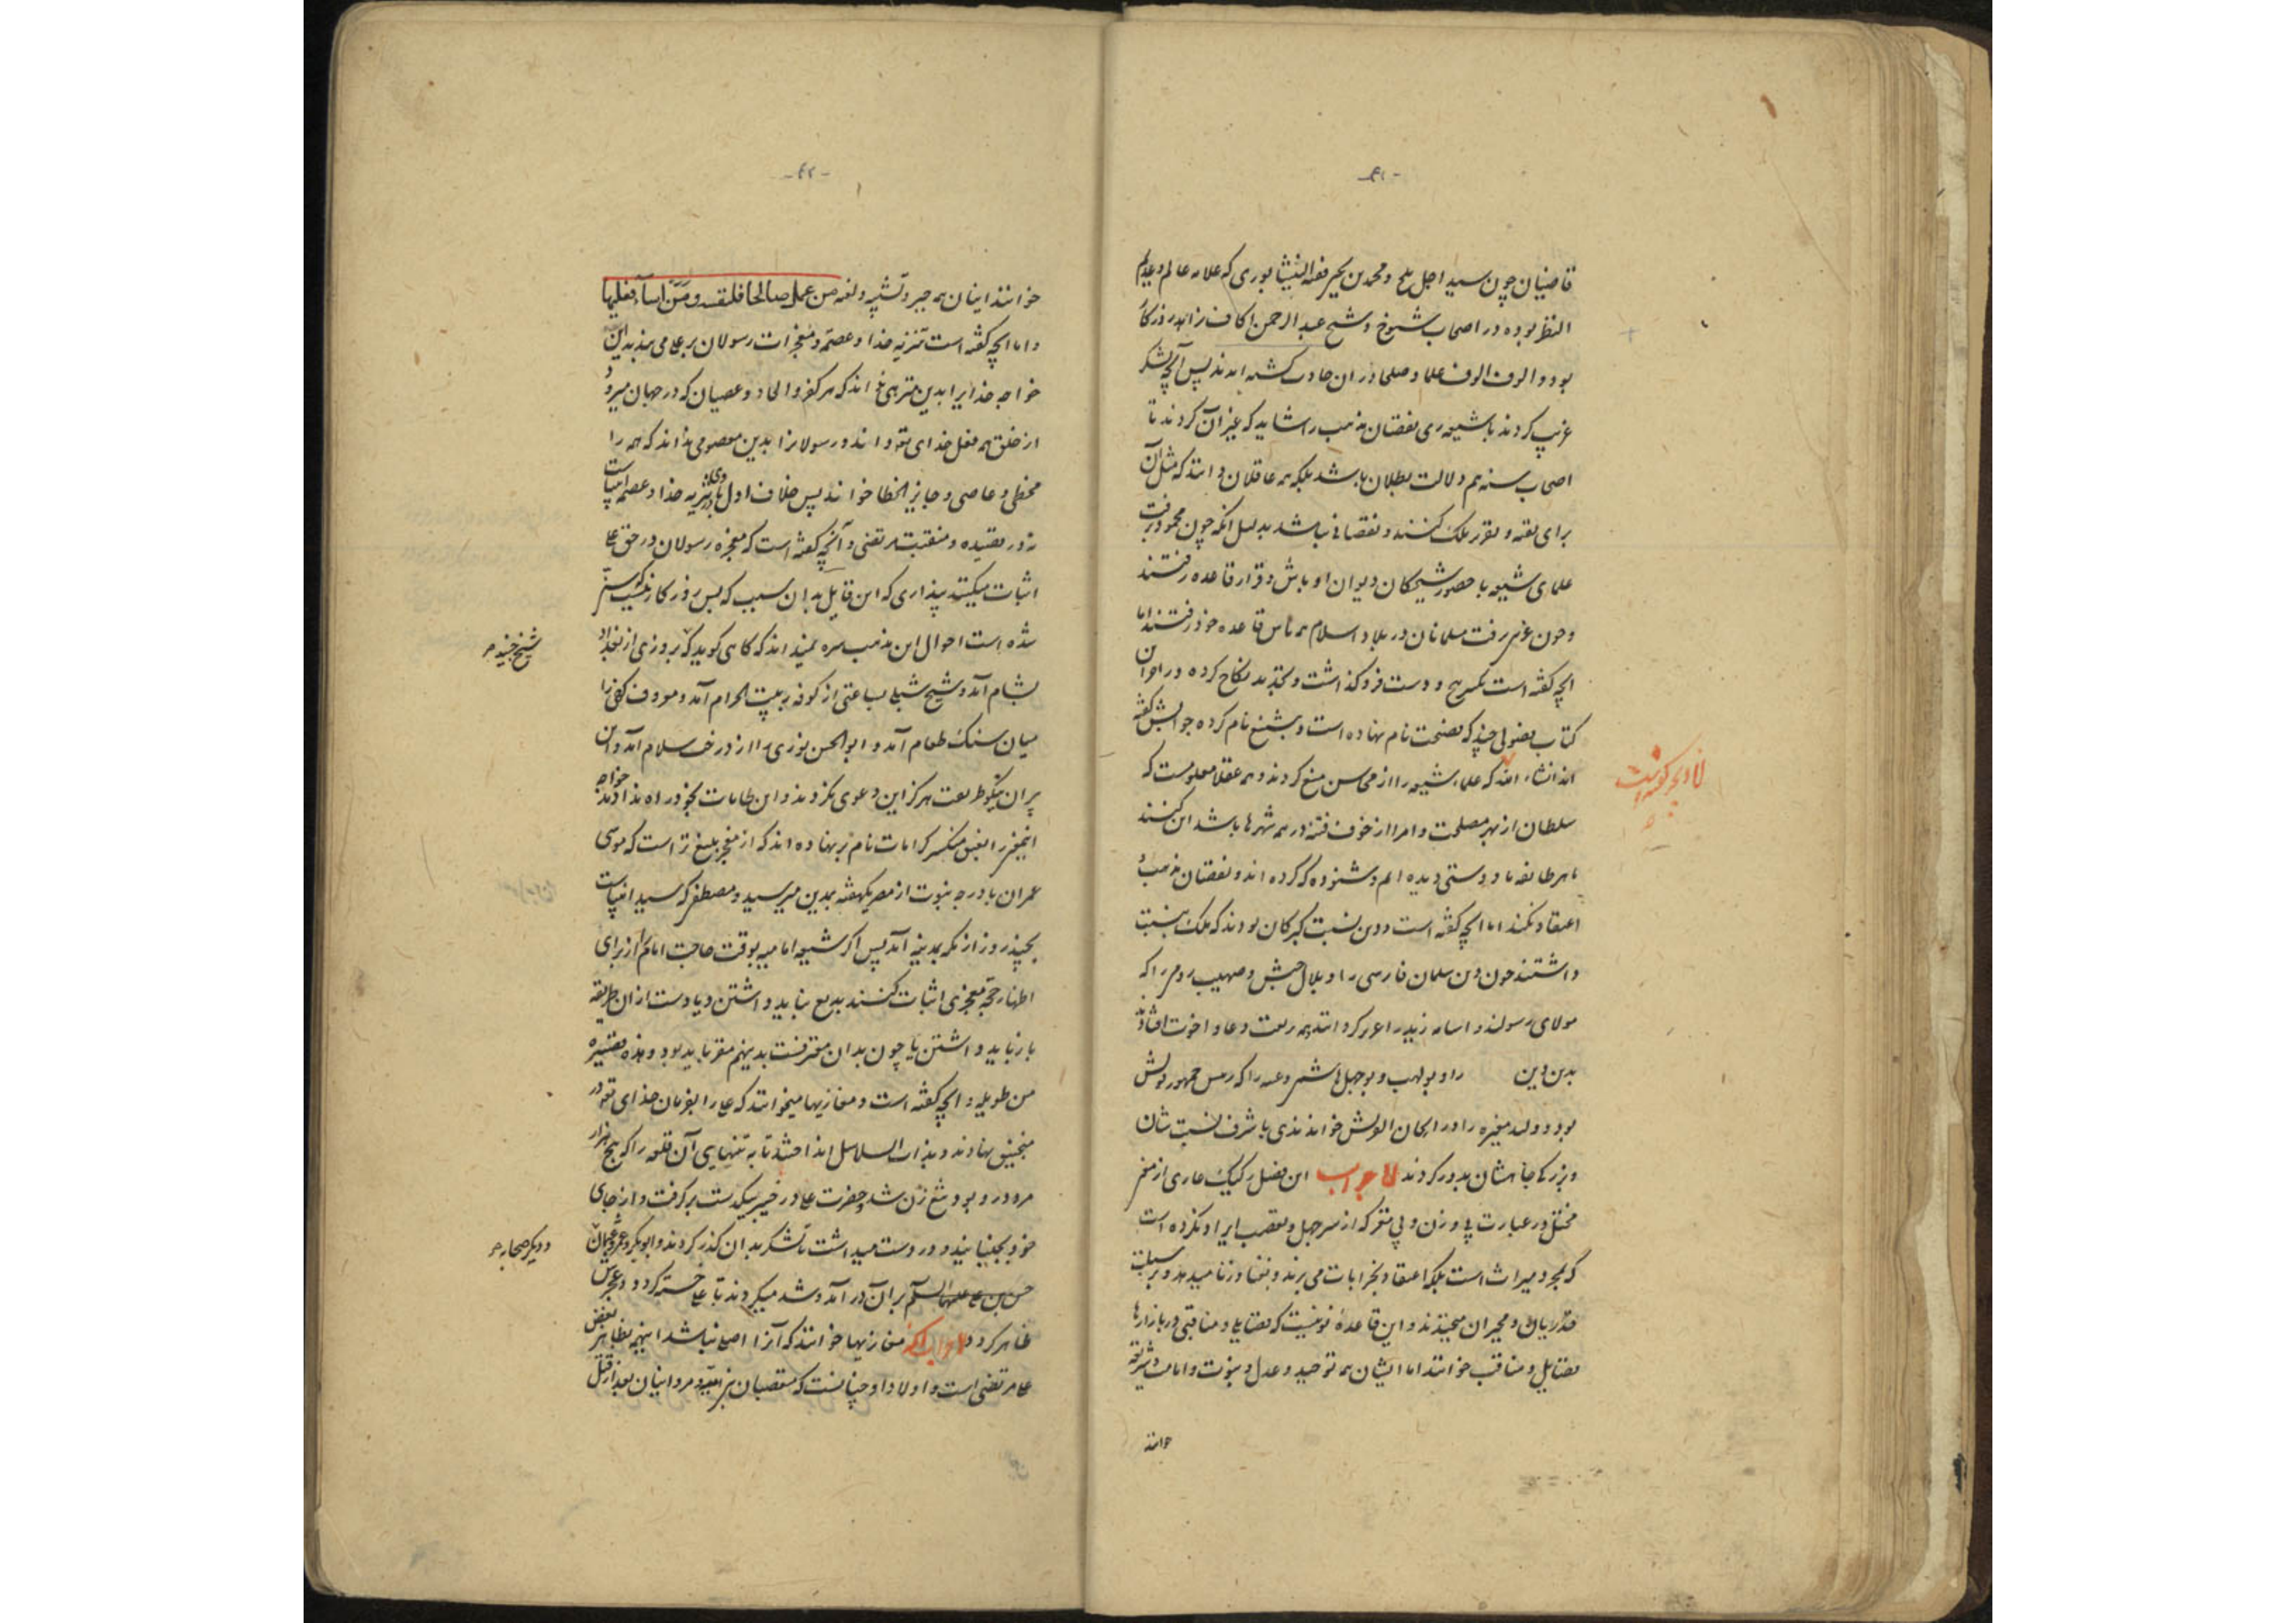 -۴۱-
قاضیان چون سید اجل بلخ و محمد بن یحیی فقیه النیشابوری که علامه عالم و عدیم
النظر بوده در اصحاب شیوخ و شیخ عبد الرحمن اکاف زاهد روزکار
بود و الوف الوف علما و صلحا در ان حادثه کشته امدند پس آنچه لشکر
غرب کردند با شیعه ری نقصان مذهب را نشاید که غیر آن کردند تا
اصحاب سنه هم دلالت بطلان باشد بلکه همه عاقلان دانند که مثل آن
برای تقه و تقریر ملک کنند و نقصانی نباشد بدلیل انکه چون محمود برفت
علمای شیعه با حضور شیحکان دیوان اوباش و قرار قاعده رفتند
و چون غز برفت مسلمانان در بلاد اسلام هم باس قاعده خود رفتند اما
انچه کفته است دست فرو کذاشت و تجدید نکاح کرده در اخر ان
کتاب فضولی چند که فضیحت نام نهاده است و بشنیع نام کرده جوابش کفته
اند انشاء الله که علماء شیعه را از محاسن منع کردند و همه عقلا معلومست که
سلطان از بهر مصلحت و امرا از خوف فتنه در همه شهرها باشد این کنند
با هر طایفه ما و دوستی دیده ایم و شنوده که کرده اند و نقصان مذهب و
اعتقاد نکند اما انچه کفته است و دین بنسبت کبرکان بودند که ملک بنسبت
داشتند چون دین سلمان فارسی را و بلال حبش و صهیب روم را که
مولای رسولند و اسامه زید را
بدین دین را و بولهب و بوجهل هاشمی و عتبه را که رئیس جمهور قریش
بود و ولید مغیره را و ریحان القریش خواندندی با شرف نسبت شان
و بزرکی جاهشان بدور کردند لا جواب این فصل رکیک عاری از مغز
مختل در عبارت بی وزن و بی مغز که از سر جهل و تعصب ایراد نکرده است
که بمجرد میراث است بلکه اعتقاد بخرابات می برند و بغنا و زنا میدهد و بر سبلت
قدریان و مجبران میخندند و این قاعدهٔ نو نیست که فضایلی و مناقبی در بازارها
فضایل و مناقب خوانند اما ایشان همه توحید و عدل و نبوت و امامت و شریعه
خوانند
-۴۲-
خوانند اینان همه جبر و تشبیه و لعنه من عمل صالحا فلنفسه و من اساء فعلیها
و اما انچه کفته است تنزیه خدا و عصمة و معجزات رسولان بر علی می بندند این
خواجه خدایرا بدین منزهی میخواند که هر کفر و الحاد و عصیان که در جهان میرود
از خلق همه فعل خدای تع داند و رسولانرا بدین معصومی داند که همه را
مخطی و عاصی و جایز الخطا خواند پس خلاف اول در تنزیه خدا و عصمة انبیاست
نه در قصیده و منقبت مرتضی و آنچه کفته است که معجزه رسولان در حق علی
اثبات میکنند پنداری که این قایل بدان سبب که بس روزکار نیست که سنی
شده است احوال این مذهب سره نمیداند که کاهی کوید که بروزی از بغداد
شیخ جنید م
بشام آمد و شیخ شبلی بساعتی از کوفه به بیت الحرام آمد و معروف کرخی را
میان سنک طعام آمد و ابو الحسن نوری را از درخت سلام آمد و این
پیران نیکو طریقت هرکز این دعوی نکردند و این طامات بخود راه ندادند خواجه
اینچنین را بعینه منکر کرامات نام بر نهاده اند که از معجز بلیغ تر است که موسی
عمران با درجه نبوت از مصر بیکهفته بمدین میرسید و مصطفی که سید انبیاست
بچند روز از مکه بمدینه آمد پس اکر شیعه امامیه بوقت حاجت امام را از برای
اظهار حجّة معجزی اثبات کنند بدیع نباید داشتن و یا دست از ان طریقه
باز باید داشتن یا چون بدان مقر فست بدینهم مقر باید بود و هذه قصیره
من طویله و انچه کفته است و مغازیها میخوانند که علی را بفرمان خدای تع در
منجنیق نهادند و بذات السلاسل انداختند تا به تنهایی آن قلعه را که پنج هزار
مرد در و بود تیغ زن شد و حضرت علی در خیبر بیکدست برکرفت و از جای
خود بجنبانید و در دست میداشت تا لشکر بدان کذر کردند و ابوبکر و عمر و عثمان
و دیکر صحابه م
حسن بن علی علیهما السلم بر ان در آمد و شد میکردند تا علی خسته کردد و عجزش
ظاهر کردد اما جواب آنکه مغازیها خوانند که آنرا اصلی نباشد اینهم بظاهر بغض
علی مرتضی است و اولاد او چنانست که متعصبان بنی امیه و مروانیان بعد از قتل